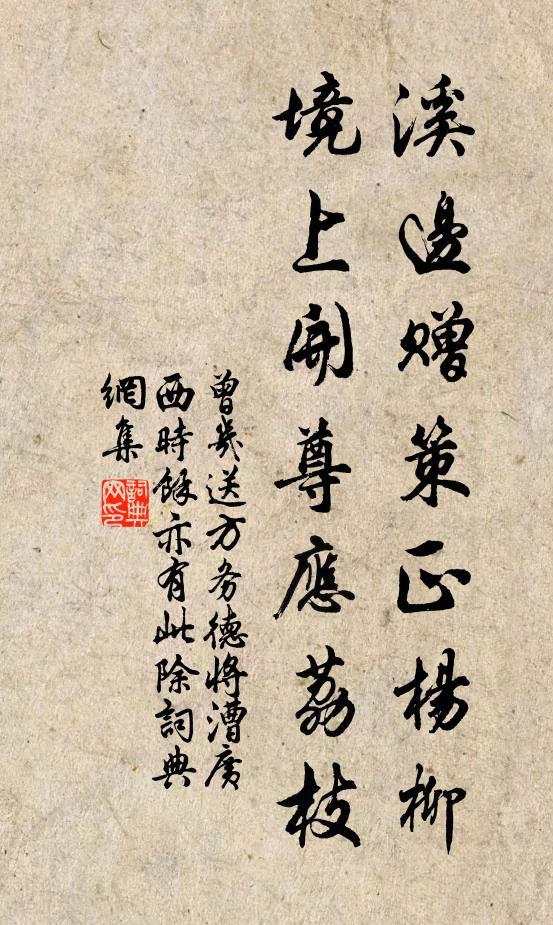 溪邊贈策正楊柳
境上開尊應荔枝
曾幾送方務德將漕廣
西時餘亦有此除詞典
網集
詞典網印